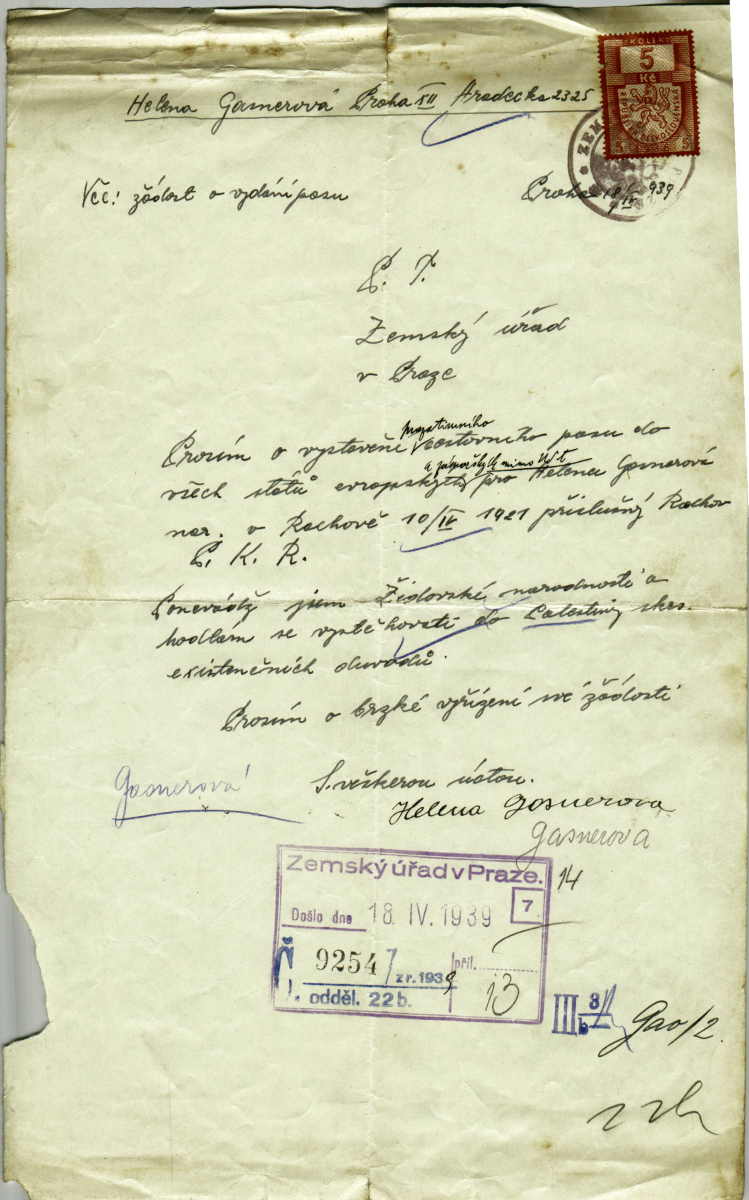 KOLEK
5
Kč
Helena Gasnerová Praha XII Hradecká 2325
Věc: žádost o vydání pasu
Praha 18/IV 939
P. T.
Zemský úřad
v Praze
prozatimního
Prosím o vystavení cestovního pasu do
a zámořských mimo
všech států evropských pro Helenu Gasnerová
nar. v Rachově 10/IV 1921 příslušný Rachov
P. K. R.
Ponevádž jsem Židovské narodnosti a
hodlám se vystěhovati do Palestiny
existenčních duvodů.
Prosím o brzké vyřízení své žádosti
S veškerou úctou.
Gasnerová
Helena Gasnerova
Gasnerova
Zemský úřad v Praze.
14
Došlo dne 18. IV. 1939
7
Č. 9254/ z r. 1939
příl.
13
odděl. 22 b.
III b
Gao/2